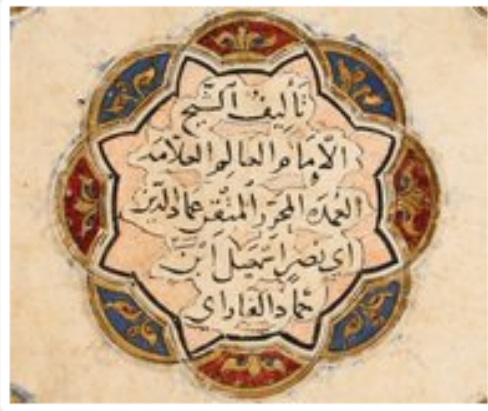 تأليف الشيخ
الامام العالم العلامه
العمدة المحرر المتقن عماد الدين
ابي نصر اسمعيل ابن
حماد الفارابي